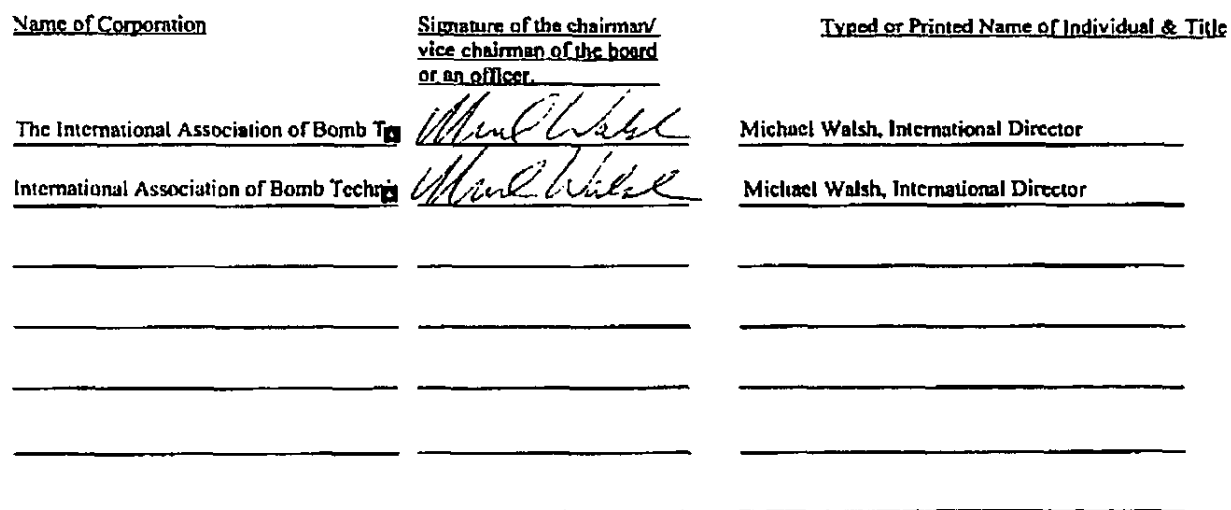 Name of Corporation
Signature of the chairman/
vice chairman of the board
or an officer.
Typed or Printed Name of Individual & Title
The International Association of Bomb Te
Michael Walsh, International Director
International Association of Bomb Techni
Michael Walsh, International Director